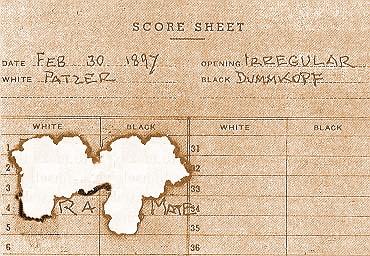 SCORE SHEET
DATE FEB 30 1897 OPENING IRREGULAR
WHITE PATZER BLACK DUMMKOPF
WHITE BLACK WHITE BLACK
1 31
2 32
3 33
4 R A MATE 34
5 35
6 36